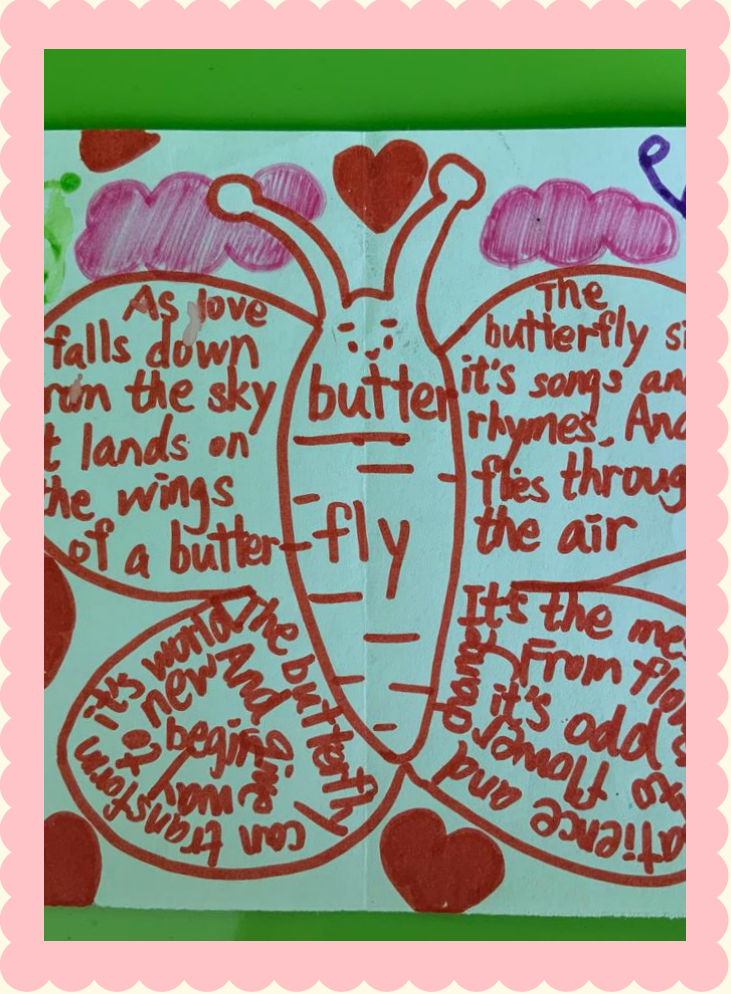 As love
falls down
rom the sky
t lands on
he wings
of a butter
butter
fly
The
butterfly si
it's songs an
rhymes. And
flies throug
the air
The butterfly
can transform
it's world
And give way
to
begin
new
It's the me
atience and
change
From flo
flower
it's odd